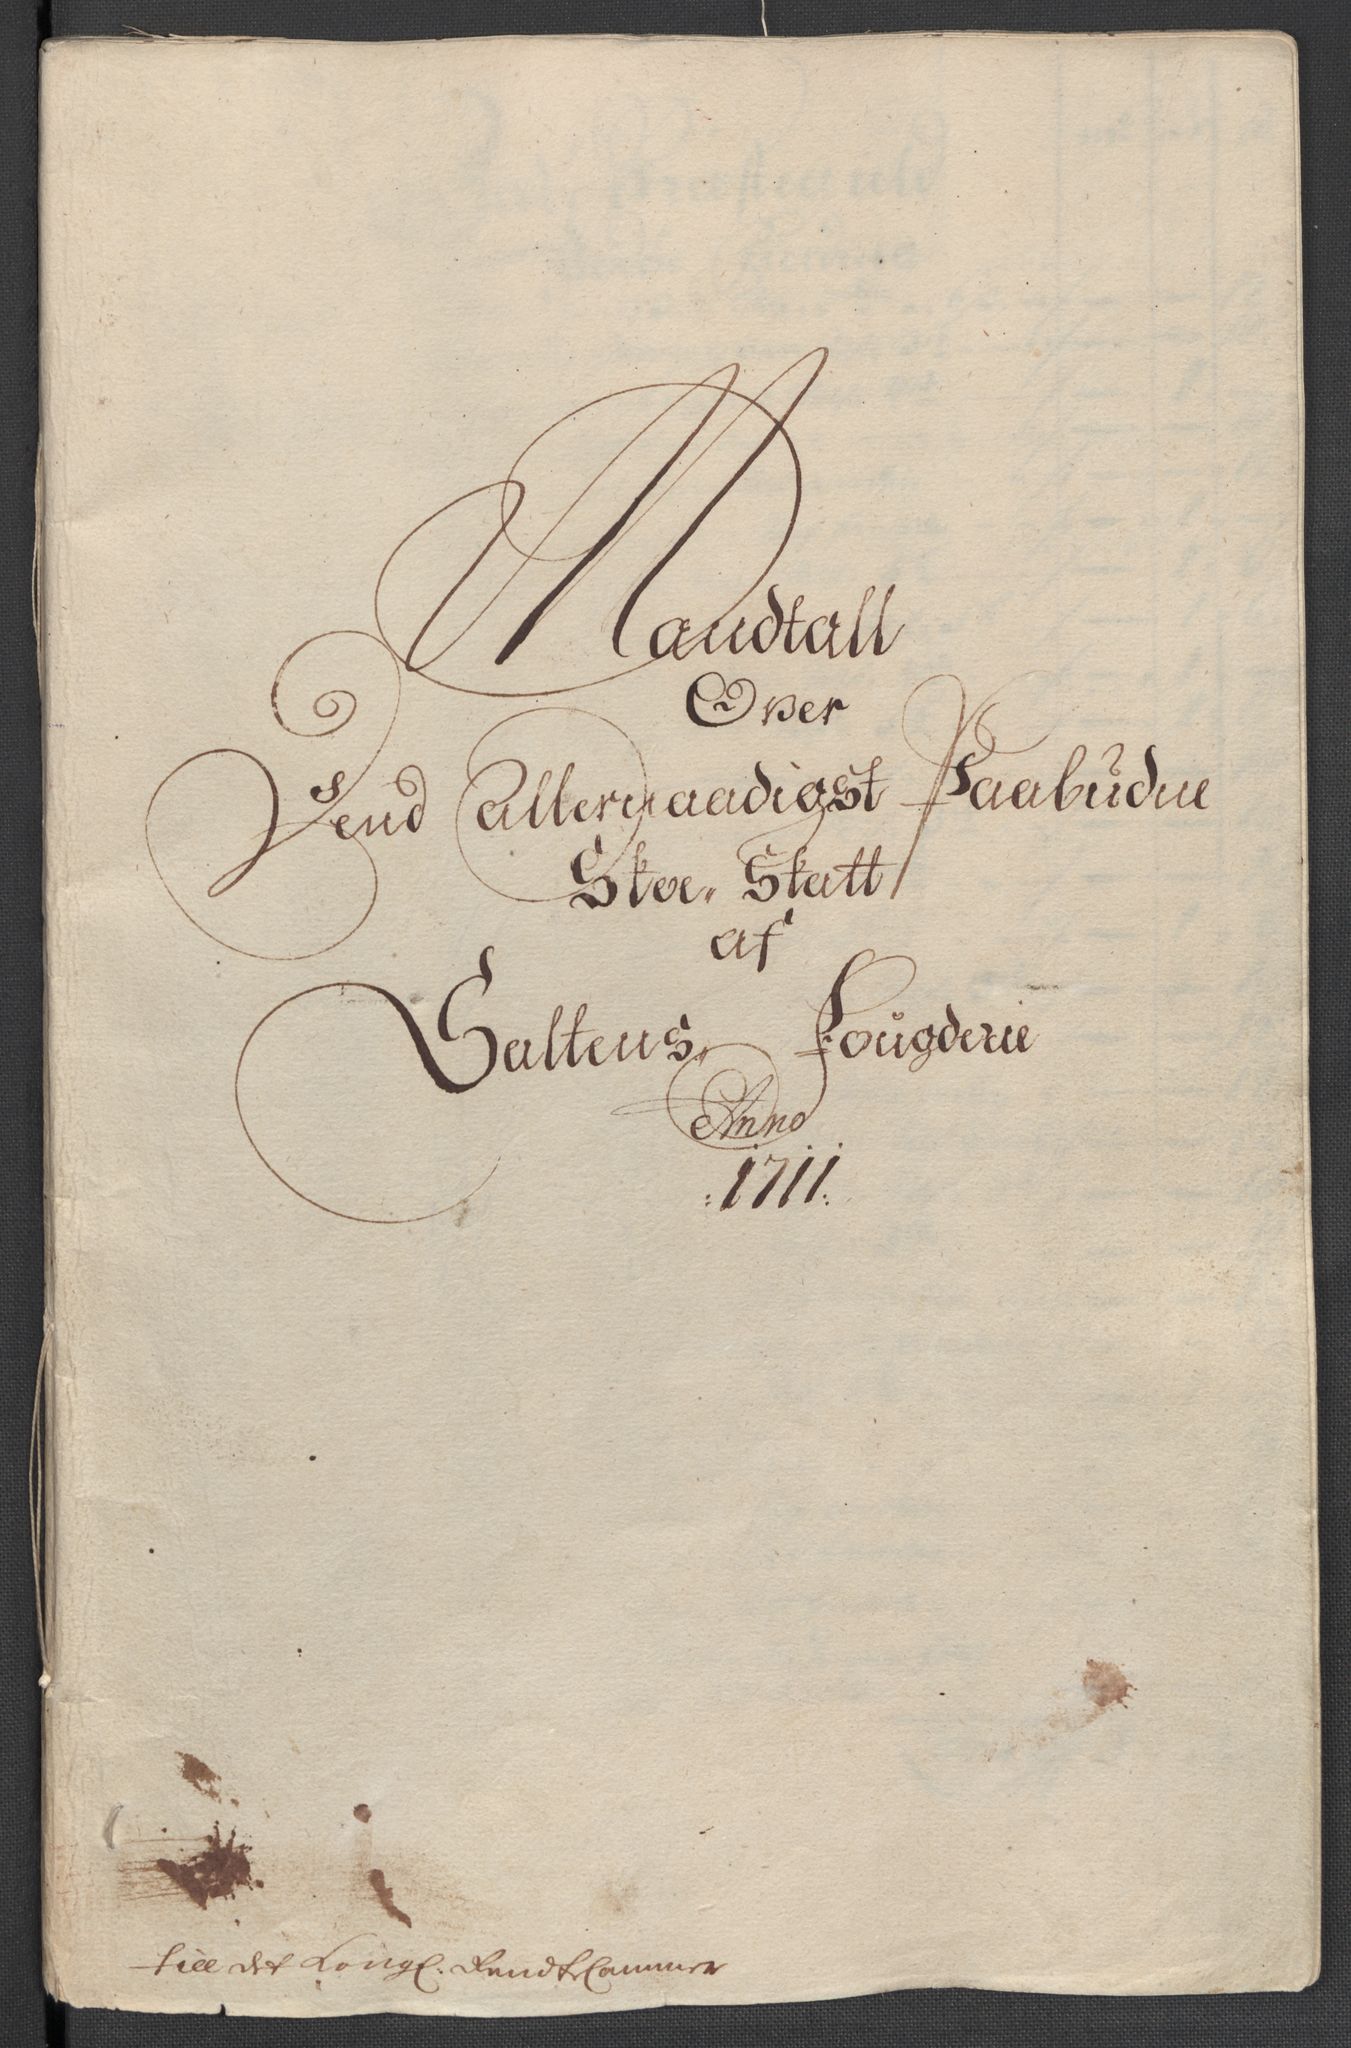 Mandtall
Over
Dend Allernaadigst Paabudne
Skoe„ Skatt
af
Saltens Fougderie
Anno
:1711:
till det Kongl. RendteCammer